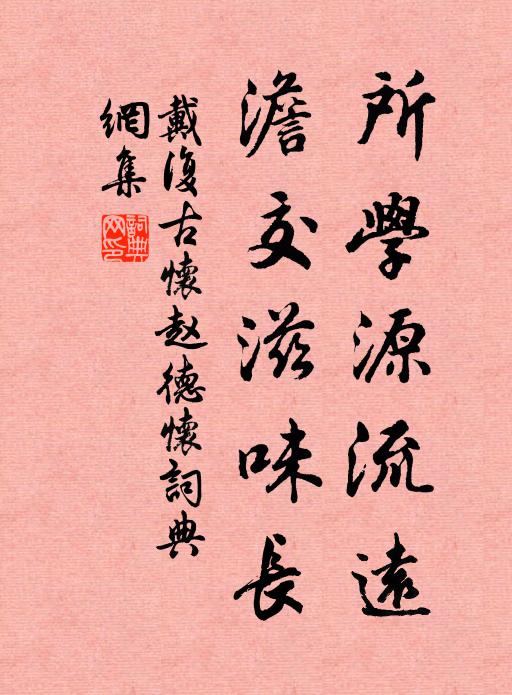 所學源流遠
澹交滋味長
戴復古懷赵德懷詞典
網集
詞典网印